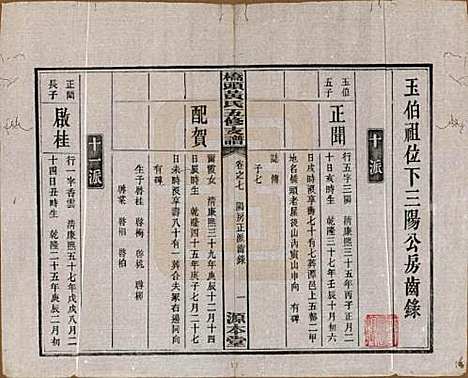 玉伯祖位下三陽公房齒錄
十一派
玉伯
五子
正聞
行五字三陽 清康熙三十五年丙子正月二
十日亥時生 乾隆三十七年壬辰十月初六
日戌時歿享壽七十有七葬源邑上五都二甲
地名橋頭老屋後山內寅山申向 有碑
誌傳
子七
配賀
爾霞女 清康熙三十九年庚辰十二月十四
日辰時生 乾隆四十五年庚子七月二十七
日未時歿享壽八十有一葬合夫冢右邊同向
有碑
生子啓桂 啓梅 啓桃 啓柳
啓棠 啓楷 啓柏
橋頭黃氏五修支譜
卷之七 陽房正派齒錄
一
源本堂
十二派
正聞
長子
啟桂
行一字香雲 清康熙五十七年戊戌八月二
十四日丑時生 乾隆二十五年庚辰二月初